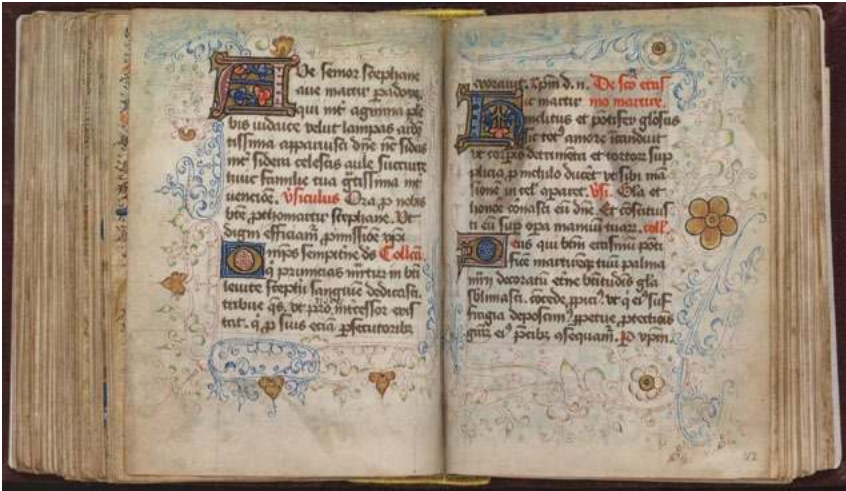 Ve semor stephane
aue martir
qui int agmina ple
bis iudaice velut lampas
tissima apparuisti dne ne sidas
int sidera celestis aule succurre
tuic familie tua gtissima int
uencione. vsiculus Ora p nobis
bte pthomartir stephane. Vt
digni efficiam pmissioe xpi
mps sempitne ds Collca.
q primicias mrtirum in bti
leuite stephi sanguine dedicasti.
tribue qs. vt pro intcessor exis
tat. q p suis ecia psecutoribz
xpm d. n. De sco eras
ic martir mo martire.
militus et potifex gliosus
tot amore
vt corpis detrimeta et tortor sup
plicia p nichilo ducet vt sibi ma
sione in cel aparet. vsi. Gla et
honoe eu dne. Et costituis
ti eu sup opa manuu tuar. coll.
eus qui btm erasmu poti
fice martiremqz tuu palma
mrij decoratu btitudis gla
sblimasti. cocede ppici vt q ei suf
fragia deposcim ppetue ptectiois
ei pcibz qsequam. P xpm.